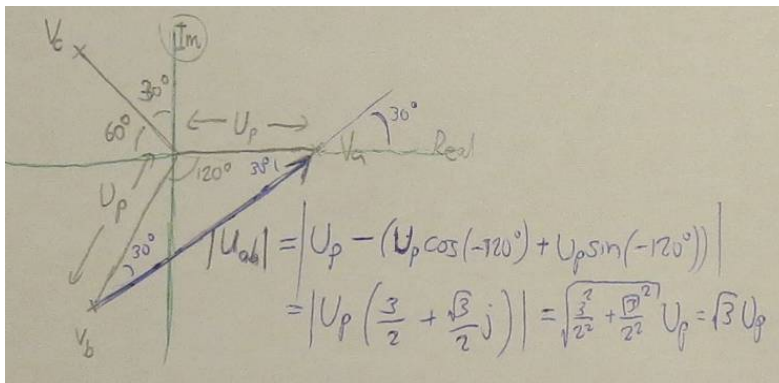 V_c
Im
30°
60°
U_p
30°
V_a
Real
120°
30°
U_p
30°
V_b
|U_ab| = |U_p - (U_p cos(-120°) + U_p sin(-120°))|
= |U_p (3/2 + √3/2 j)| = √(3²/2² + √3²/2²) U_p = √3 U_p